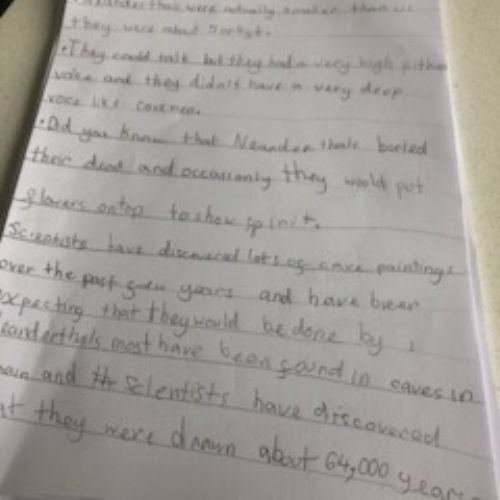 Neanderthals were actually smaller than us
they were about 5ork5t.
• They could talk but they had a very high pitched
voice and they didn't have a very deep
voice like cavemen.
• Did you know that Neanderthals buried
their dead and occasionly they would put
flowers ontop to show spirit.
Scientists have discovered lots of cave paintings
over the past few years and have been
expecting that they would be done by
eanderthals most have been found in caves in
pain and the scientists have discovered
at they were drawn about 64,000 years